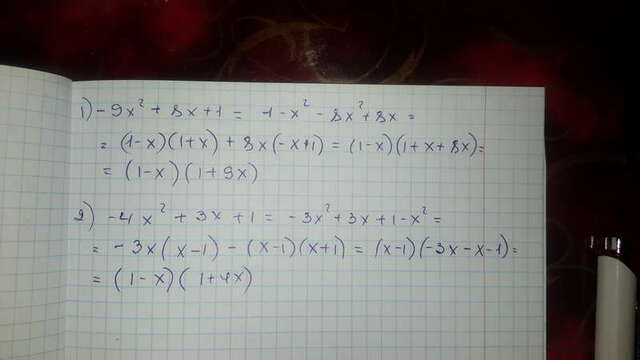 1) -9x² + 8x + 1 = 1 - x² - 8x² + 8x =
= (1-x)(1+x) + 8x(-x+1) = (1-x)(1+x+8x) =
= (1-x)(1+9x)
2) -4x² + 3x + 1 = -3x² + 3x + 1 - x² =
= -3x(x-1) - (x-1)(x+1) = (x-1)(-3x-x-1) =
= (1-x)(1+4x)